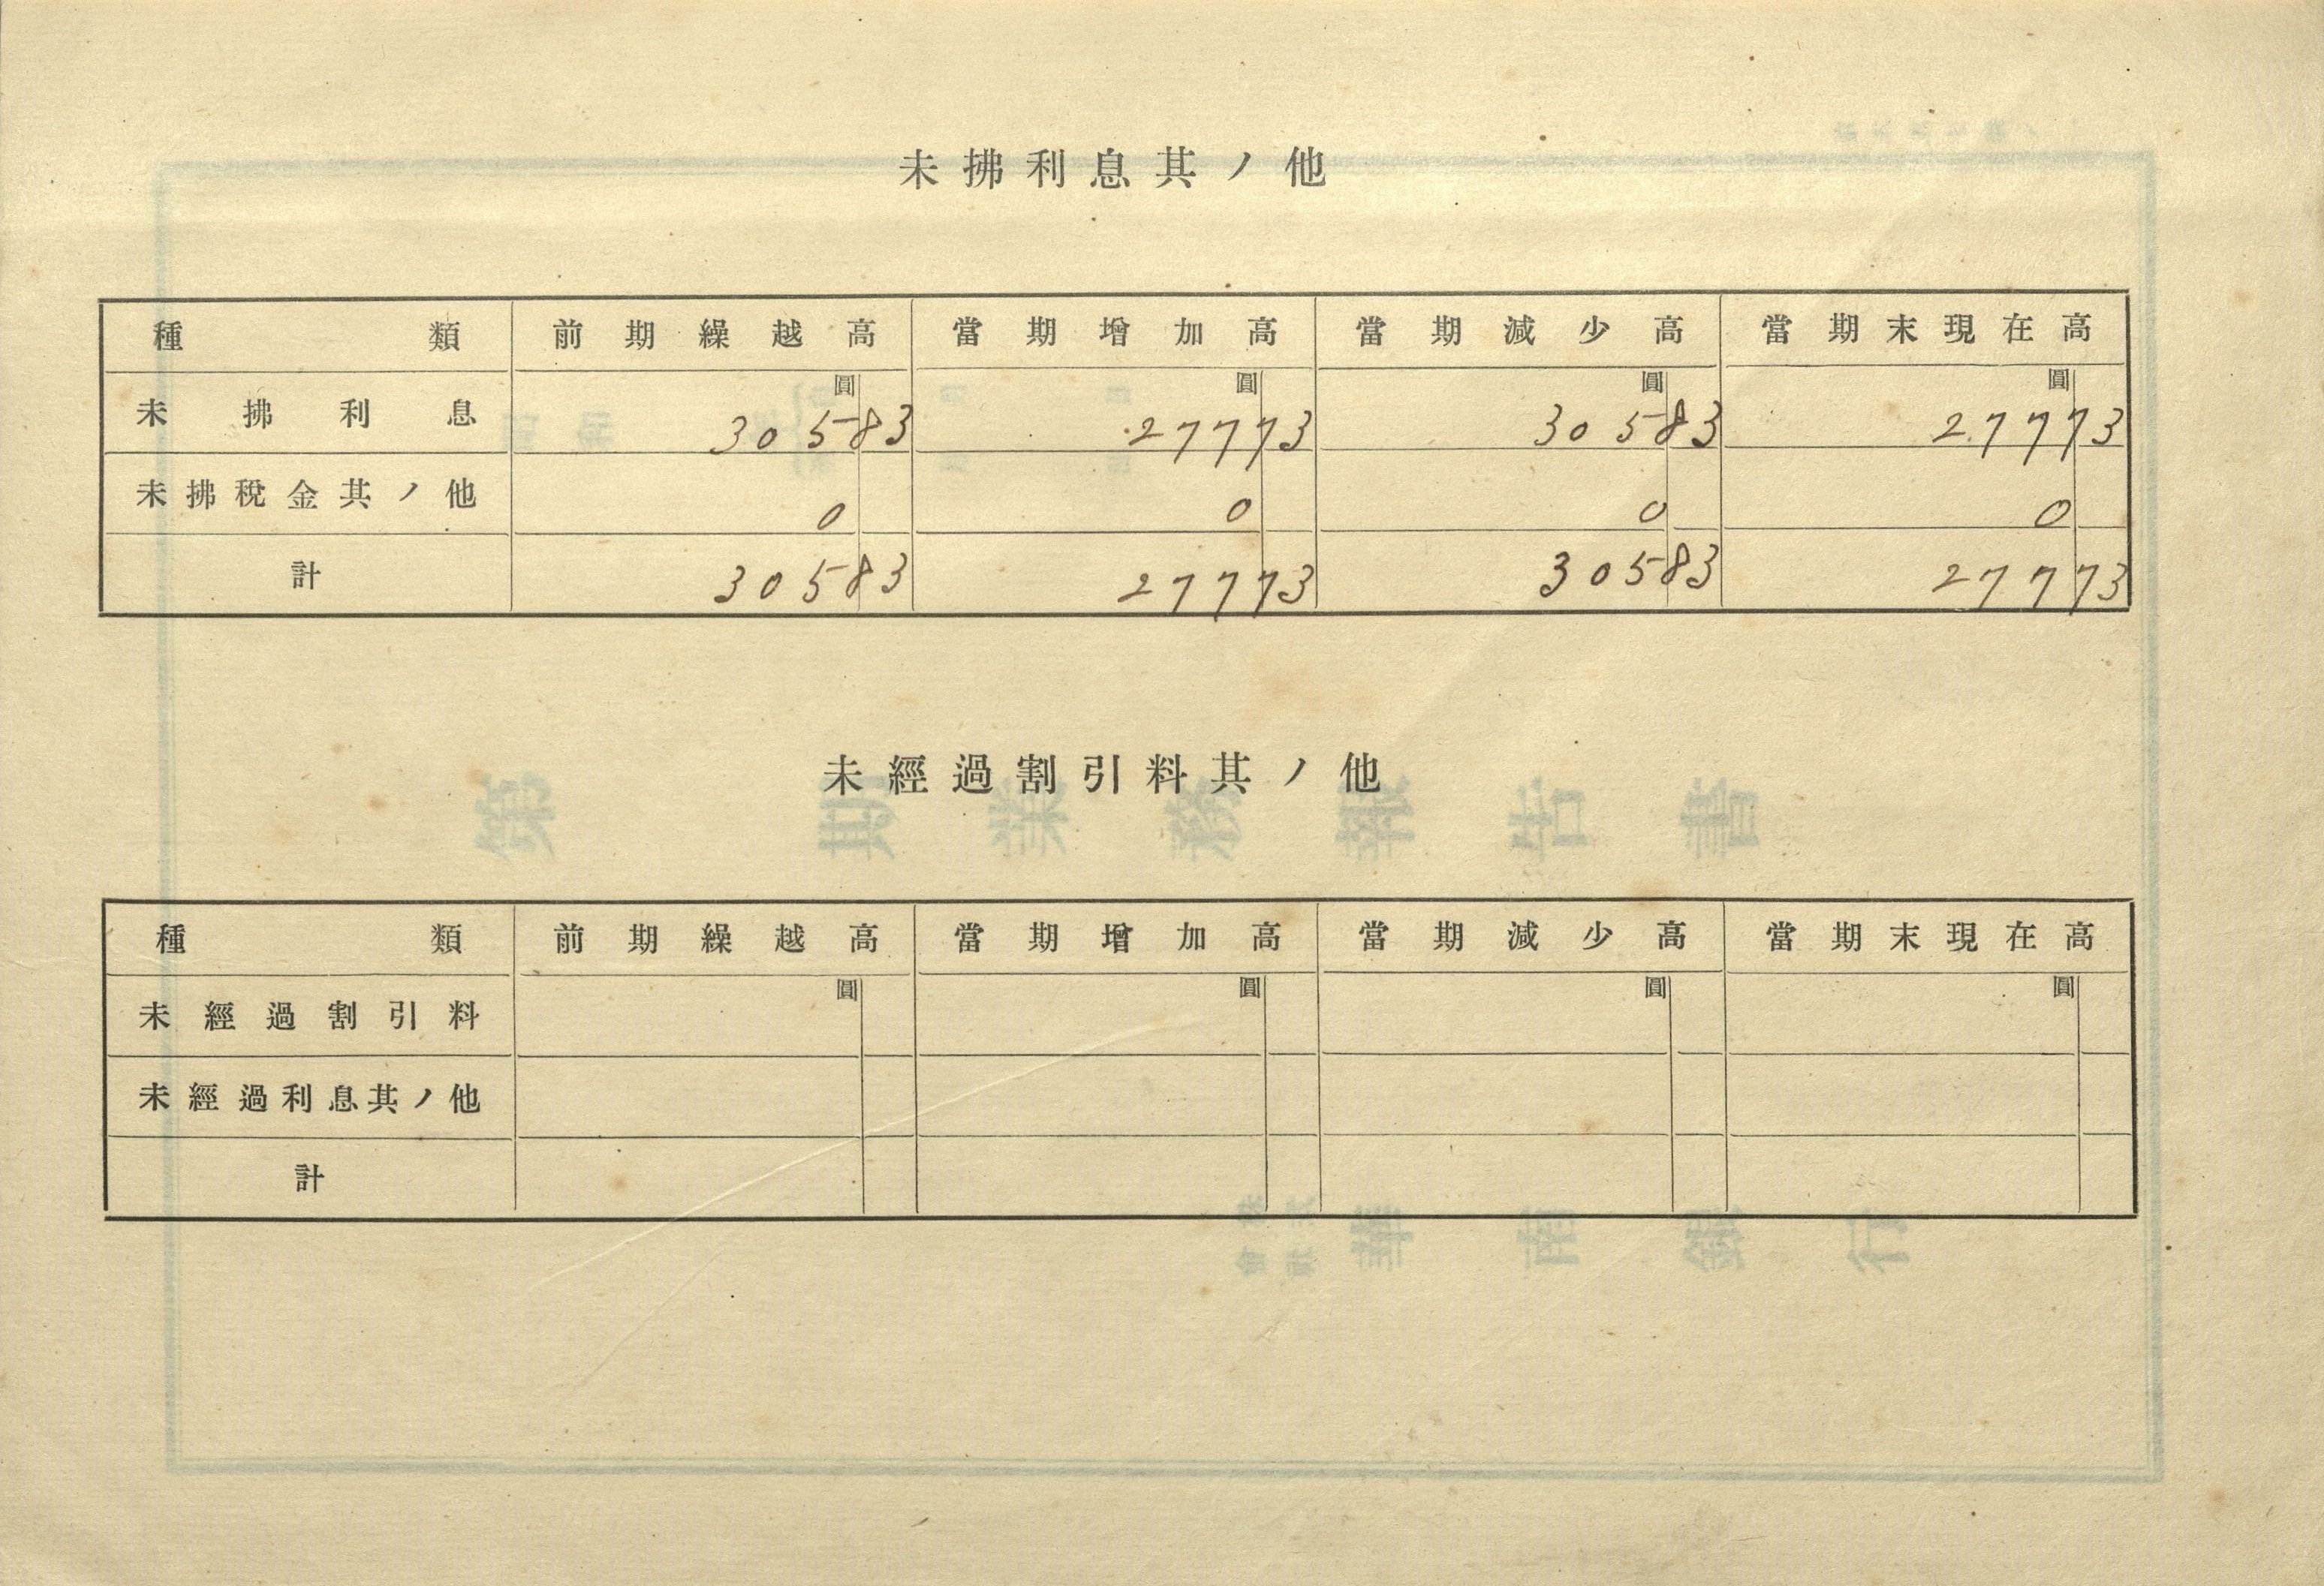 未拂利息其ノ他
種類 前期繰越高 當期增加高 當期減少高 當期末現在高
圓 圓 圓 圓
未拂利息 305 83 277 73 305 83 277 73
未拂稅金其ノ他 0 0 0 0
計 305 83 277 73 305 83 277 73
未經過割引料其ノ他
種類 前期繰越高 當期增加高 當期減少高 當期末現在高
圓 圓 圓 圓
未經過割引料
未經過利息其ノ他
計
第 期業務報告書
株式會社 華南銀行